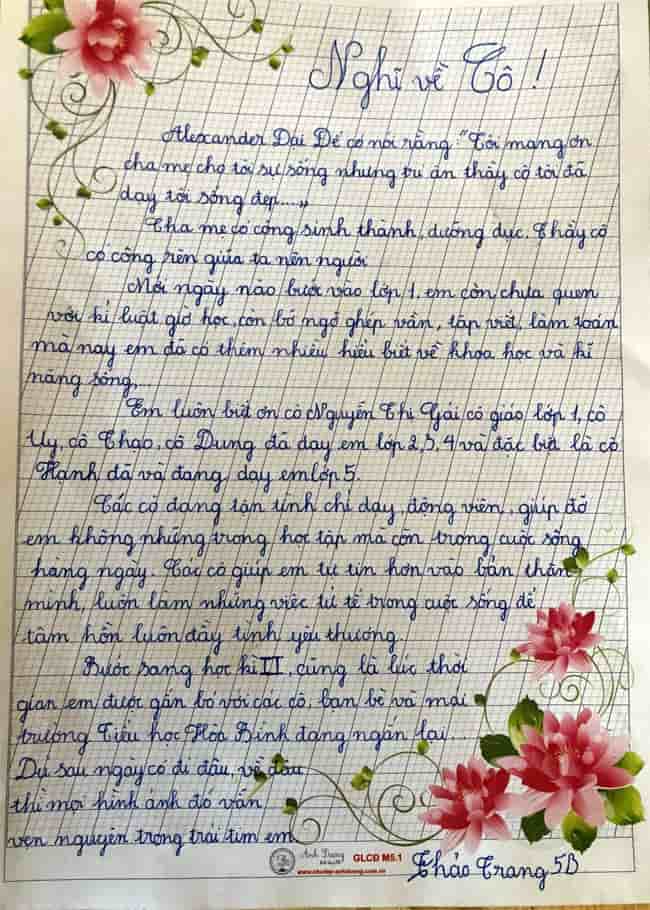 Nghĩ về Cô !
Alexander Đại Đế có nói rằng "Tôi mang ơn
cha mẹ cho tôi sự sống nhưng tri ân thầy cô tôi đã
dạy tôi sống đẹp....„
Cha mẹ có công sinh thành, dưỡng dục. Thầy cô
có công rèn giũa ta nên người
Mới ngày nào bước vào lớp 1, em còn chưa quen
với kỉ luật giờ học, còn bỡ ngỡ ghép vần, tập viết, làm toán
mà nay em đã có thêm nhiều hiểu biết về khoa học và kĩ
năng sống,...
Em luôn biết ơn cô Nguyễn Thị Gái cô giáo lớp 1, cô
Uy, cô Thạo, cô Dung đã dạy em lớp 2, 3, 4 và đặc biệt là cô
Hạnh đã và đang dạy em lớp 5.
Các cô đang tận tình chỉ dạy, động viên, giúp đỡ
em không những trong học tập mà còn trong cuộc sống
hàng ngày. Các cô giúp em tự tin hơn vào bản thân
mình, luôn làm những việc tử tế trong cuộc sống để
tâm hồn luôn đầy tình yêu thương.
Bước sang học kì II, cũng là lúc thời
gian em được gắn bó với các cô, bạn bè và mái
trường Tiểu học Hòa Bình đang ngắn lại...
Dù sau này có đi đâu, về đâu
thì mọi hình ảnh đó vẫn
vẹn nguyên trong trái tim em
Ánh Dương
GLCD M5.1
Thảo Trang 5B